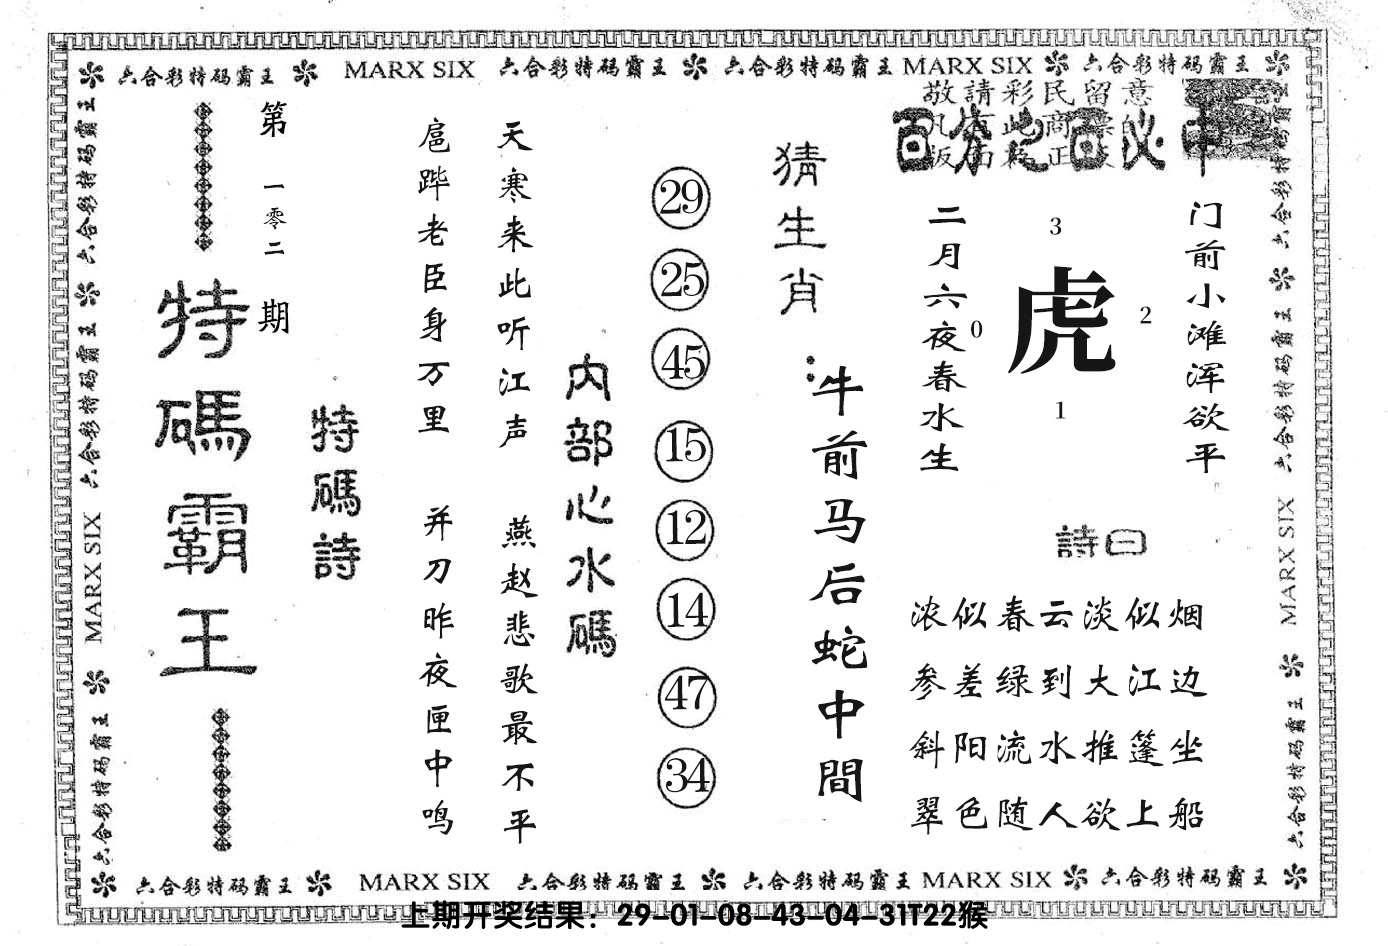 六合彩特码霸王 MARX SIX 六合彩特码霸王 六合彩特码霸王 MARX SIX 六合彩特码霸王
敬請彩民留意
百分之百必中
门前小滩浑欲平
二月六夜春水生
虎
3
0
2
1
詩曰
浓似春云淡似烟
参差绿到大江边
斜阳流水推篷坐
翠色随人欲上船
猜生肖：
牛前马后蛇中間
29
25
45
15
12
14
47
34
内部心水碼
天寒来此听江声 燕赵悲歌最不平
扈跸老臣身万里 并刀昨夜匣中鸣
特碼詩
第一零二期
特碼霸王
六合彩特码霸王 六合彩特码霸王 MARX SIX 六合彩特码霸王
六合彩特码霸王 六合彩特码霸王 MARX SIX 六合彩特码霸王
六合彩特码霸王 MARX SIX 六合彩特码霸王 六合彩特码霸王 MARX SIX 六合彩特码霸王
上期开奖结果：29-01-08-43-04-31T22猴